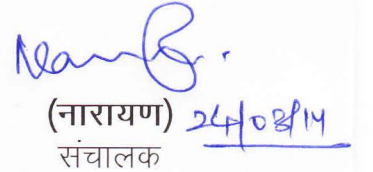 (नारायण) 24/03/14
संचालक